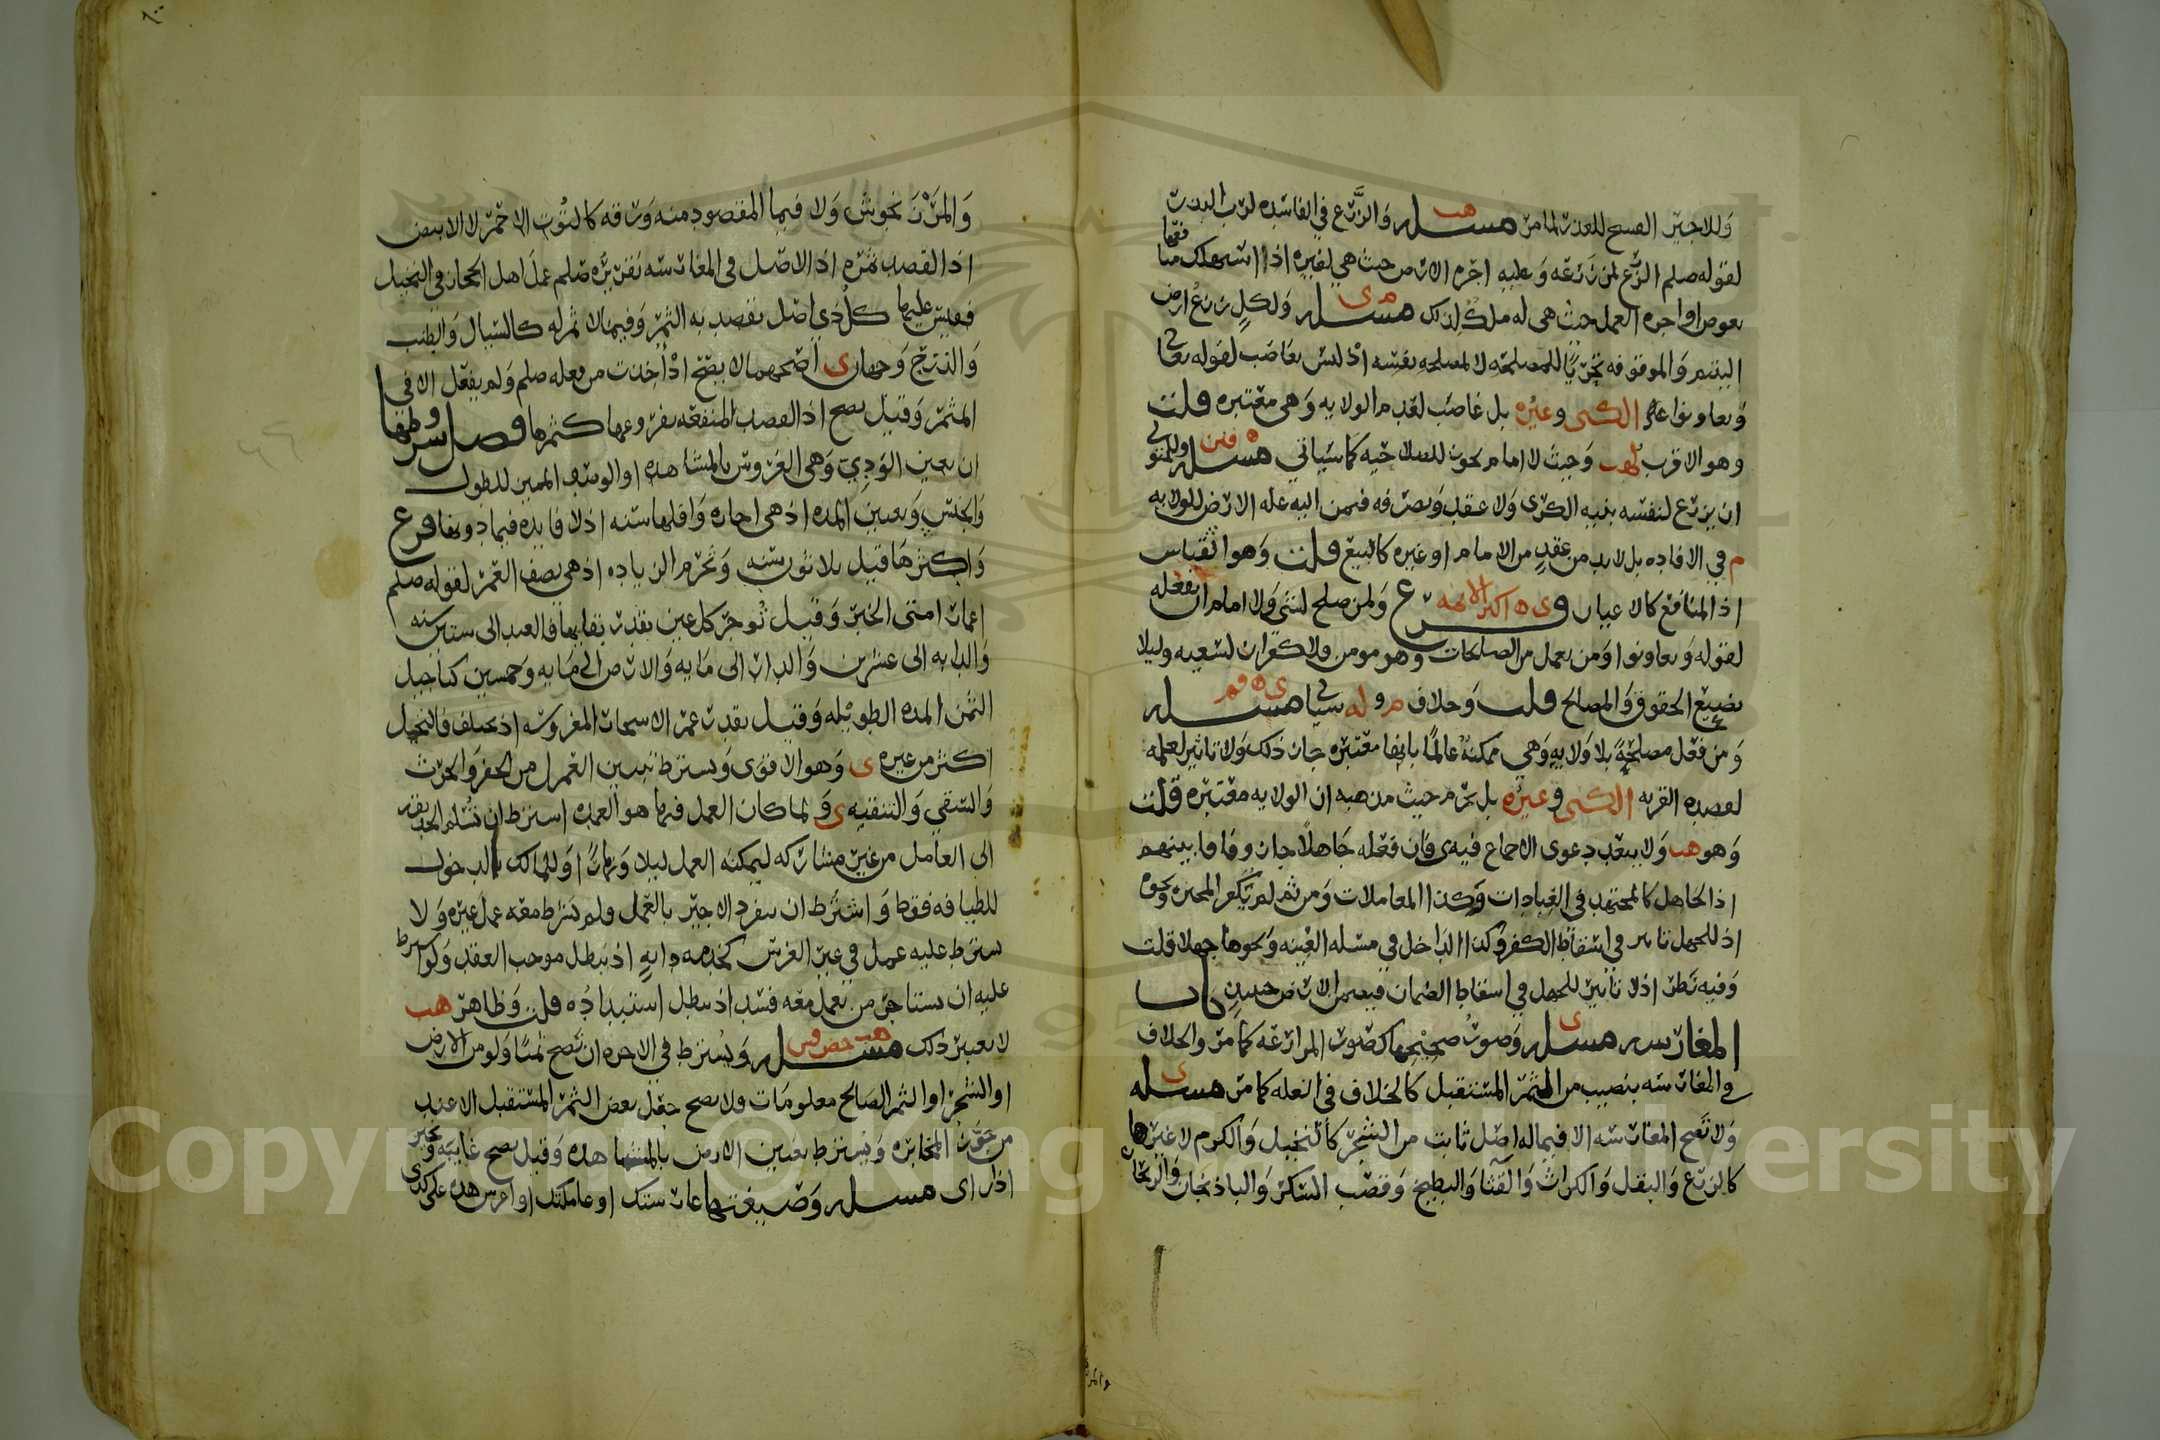 وللاجير الفسخ للعذر لما مر مسله هب والزرع في الفاسده لرب البذر
لقوله صلم الزرع لمن زرعه وعليه اجره الارض حيث هي لغيره اذا استهلك منافعها
بعوض او اجره العمل حيث هي له ملك لذلك مسله م ى ولكل زرع ارض
اليتيم والموقوفه تحريا للمصلحه لا لمصلحه نفسه اذ ليس بغاصب لقوله تعالى
وتعاونوا على الكنى وغيره بل غاصب لعدم الولايه وهي معتبره قلت
وهو الاقرب للهب وحيث لا امام يكون للصلاحيه كما سياتي مسله ه فرين وللمتولي
ان يزرع لنفسه بنيه الكرى ولا عقد وتصرفه فيمن اليه غله الارض للولايه
م في الافاده بل لا بد من عقد من الامام او غيره كالبيع قلت وهو القياس
اذ المنافع كالاعيان ى ه اكثر الائمه فرع ولمن صلح لشي ولا امام ان يفعله
لقوله وتعاونوا ومن يعمل من الصلحات وهو مومن فلا كفران لسعيه وليلا
يضيع الحقوق والمصالح قلت وخلاف م وله سياتي مسله ى ه قم
ومن فعل مصلحة بلا ولايه وهي ممكنة عالما بانها معتبره جاز ذلك ولا تاثير لعلمه
لقصده القربه الكنى وغيره بل يحرم حيث مذهبه ان الولايه معتبره قلت
وهو هب ولا يبعد دعوى الاجماع فيه ى فان فعله جاهلا جاز وفاقا بينهم
اذ الجاهل كالمجتهد في العبادات وكذا المعاملات ومن ثم لم يكفر المجبره ونحوه
اذ للجهل تاثير في اسقاط الكفر وكذا الداخل في مسله الغيبه ونحوها جهلا قلت
وفيه نظر اذ لا تاثير للجهل في اسقاط الضمان فيضمن الارض حينئذ باب
المغارسه مسله ى وصور صحيحها كصور المزارعه كما مر والخلاف
في المغارسه بنصيب من الثمر المستقبل كالخلاف في الغله كما مر مسله ى
ولا تصح المغارسه الا فيما له اصل ثابت من الشجر كالنخيل والكرم لا غيرها
كالزرع والبقل والكراث والقثا والبطيخ وقصب السكر والباذنجان والريحان
والمرن نجوش ولا فيما المقصود منه ورقه كالتوت الاحمر لا الابيض
اذ القصد ثمره اذ الاصل في المغارسه تقريره صلم عمل اهل الحجاز في النخيل
فقيس عليها كل ذي اصل يقصد به الثمر وفيما لا ثمر له كالسيال والطنب
والدترج وجهان ى اصحهما لا يصح اذ اخذت من فعله صلم ولم يفعل الا في
المثمر وقيل يصح اذ القصد المنفعه بفروعها كثمرها فصل وشرطها
ان يعين الودي وهي الغروس بالمشاهده او الوصف المميز للطول
والجنس وتعيين المده اذ هي اجاره واقلها سنه اذ لا فايده فيما دونها فرع
واكثرها قيل ثلاثون سنه وتحرم الزياده اذ هي نصف العمر لقوله صلم
اعمار امتي الخبر وقيل توجر كل عين بقدر بقايها فالعبد الى ستين سنه
والدابه الى عشرين والدار الى مايه والارض الى مايه وخمسين كتاجيل
الثمن المده الطويله وقيل بقدر عمر الاشجار المغروسه اذ يختلف فالنخيل
اكثر من غيره ى وهو الاقوى ويشترط تبيين العمل من الحفر والحرث
والسقي والتنقيه ى ولما كان العمل فيها هو العمده اشترط ان تسلم الحديقه
الى العامل من غير مشاركه ليمكنه العمل ليلا ونهارا وللمالك الدخول
للطيافه فقط واشترط ان ينفرد الاجير بالعمل ولم يشرط معه عمل غيره ولا
يشرط عليه عمل في غير الغرس كخدمه دابه اذ يبطل موجب العقد ولو شرط
عليه ان يستاجر من يعمل معه فسد اذ يبطل استبداده قلت وظاهر هب
لا يعتبر ذلك مسله هب حص قين ويشترط في الاجره ان تصح ثمنا ولو من الارض
او الشجر او الثمر الصالح معلومات ولا يصح جعل بعض الثمر المستقبل الا عند
من جوز المخابره ويشترط تعيين الارض بالمشاهده وقيل يصح غايبه وخير
اذا راى مسله وصيغتها غارستك او عاملتك او اغرس هذه على كذى
والمرن